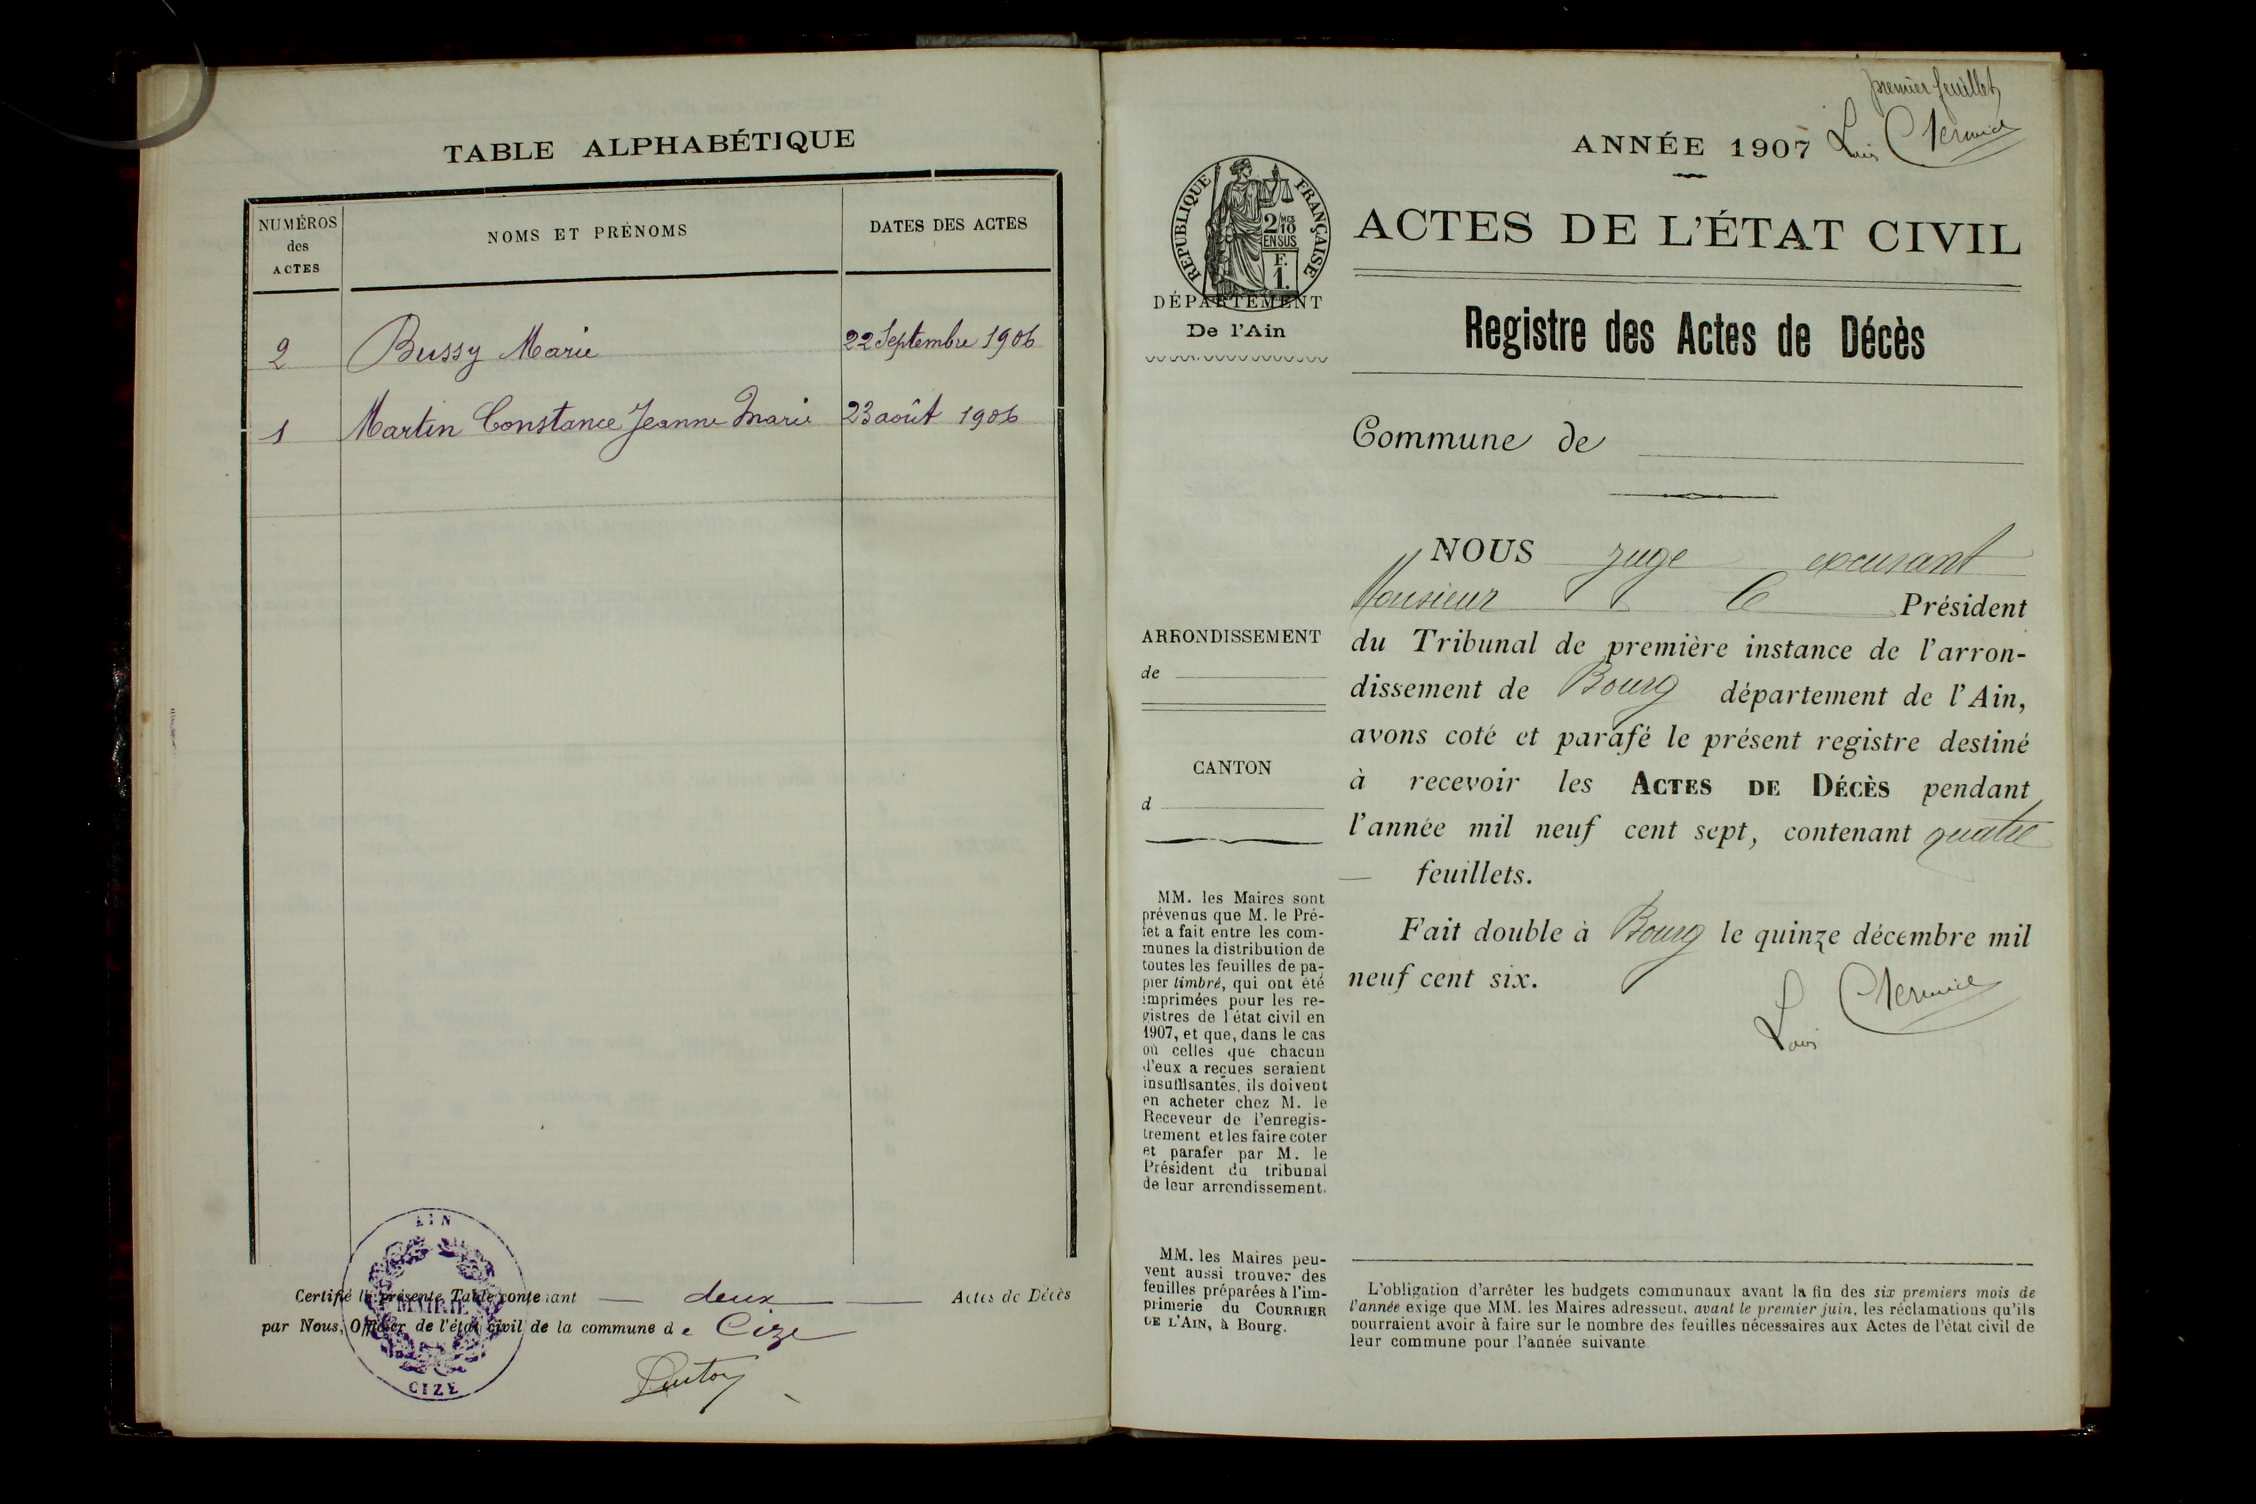 TABLE ALPHABÉTIQUE
NUMÉROS
des
ACTES
NOMS ET PRÉNOMS
DATES DES ACTES
2 Bussy Marie 22 Septembre 1906
1 Martin Constance Jeanne Marie 23 août 1906
Certifié la présente Table contenant deux Actes de Décès
par Nous, Officier de l'état civil de la commune de Cize
AIN
MAIRIE
CIZE
premier feuillet
ANNÉE 1907 Louis
RÉPUBLIQUE FRANÇAISE
2/10 MES
EN SUS
F.
1.
DÉPARTEMENT
De l'Ain
ACTES DE L'ÉTAT CIVIL
Registre des Actes de Décès
Commune de
ARRONDISSEMENT
de
CANTON
d
MM. les Maires sont
prévenus que M. le Pré-
fet a fait entre les com-
munes la distribution de
toutes les feuilles de pa-
pier timbré, qui ont été
imprimées pour les re-
gistres de l'état civil en
1907, et que, dans le cas
où celles que chacun
d'eux a reçues seraient
insuffisantes, ils doivent
en acheter chez M. le
Receveur de l'enregis-
trement et les faire coter
et parafer par M. le
Président du tribunal
de leur arrondissement.
MM. les Maires peu-
vent aussi trouver des
feuilles préparées à l'im-
primerie du COURRIER
DE L'AIN, à Bourg.
NOUS juge excusant
Monsieur le Président
du Tribunal de première instance de l'arron-
dissement de Bourg département de l'Ain,
avons coté et parafé le présent registre destiné
à recevoir les ACTES DE DÉCÈS pendant
l'année mil neuf cent sept, contenant quatre
feuillets.
Fait double à Bourg le quinze décembre mil
neuf cent six.
Louis
L'obligation d'arrêter les budgets communaux avant la fin des six premiers mois de
l'année exige que MM. les Maires adressent, avant le premier juin, les réclamations qu'ils
pourraient avoir à faire sur le nombre des feuilles nécessaires aux Actes de l'état civil de
leur commune pour l'année suivante